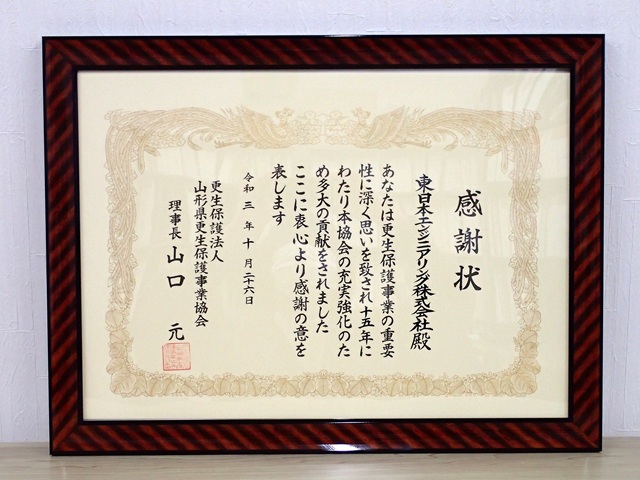 感謝状
東日本エンジニアリング株式会社殿
あなたは更生保護事業の重要
性に深く思いを致され十五年に
わたり本協会の充実強化のた
め多大の貢献をされました
ここに衷心より感謝の意を
表します
令和三年十月二十六日
更生保護法人
山形県更生保護事業協会
理事長 山口 元